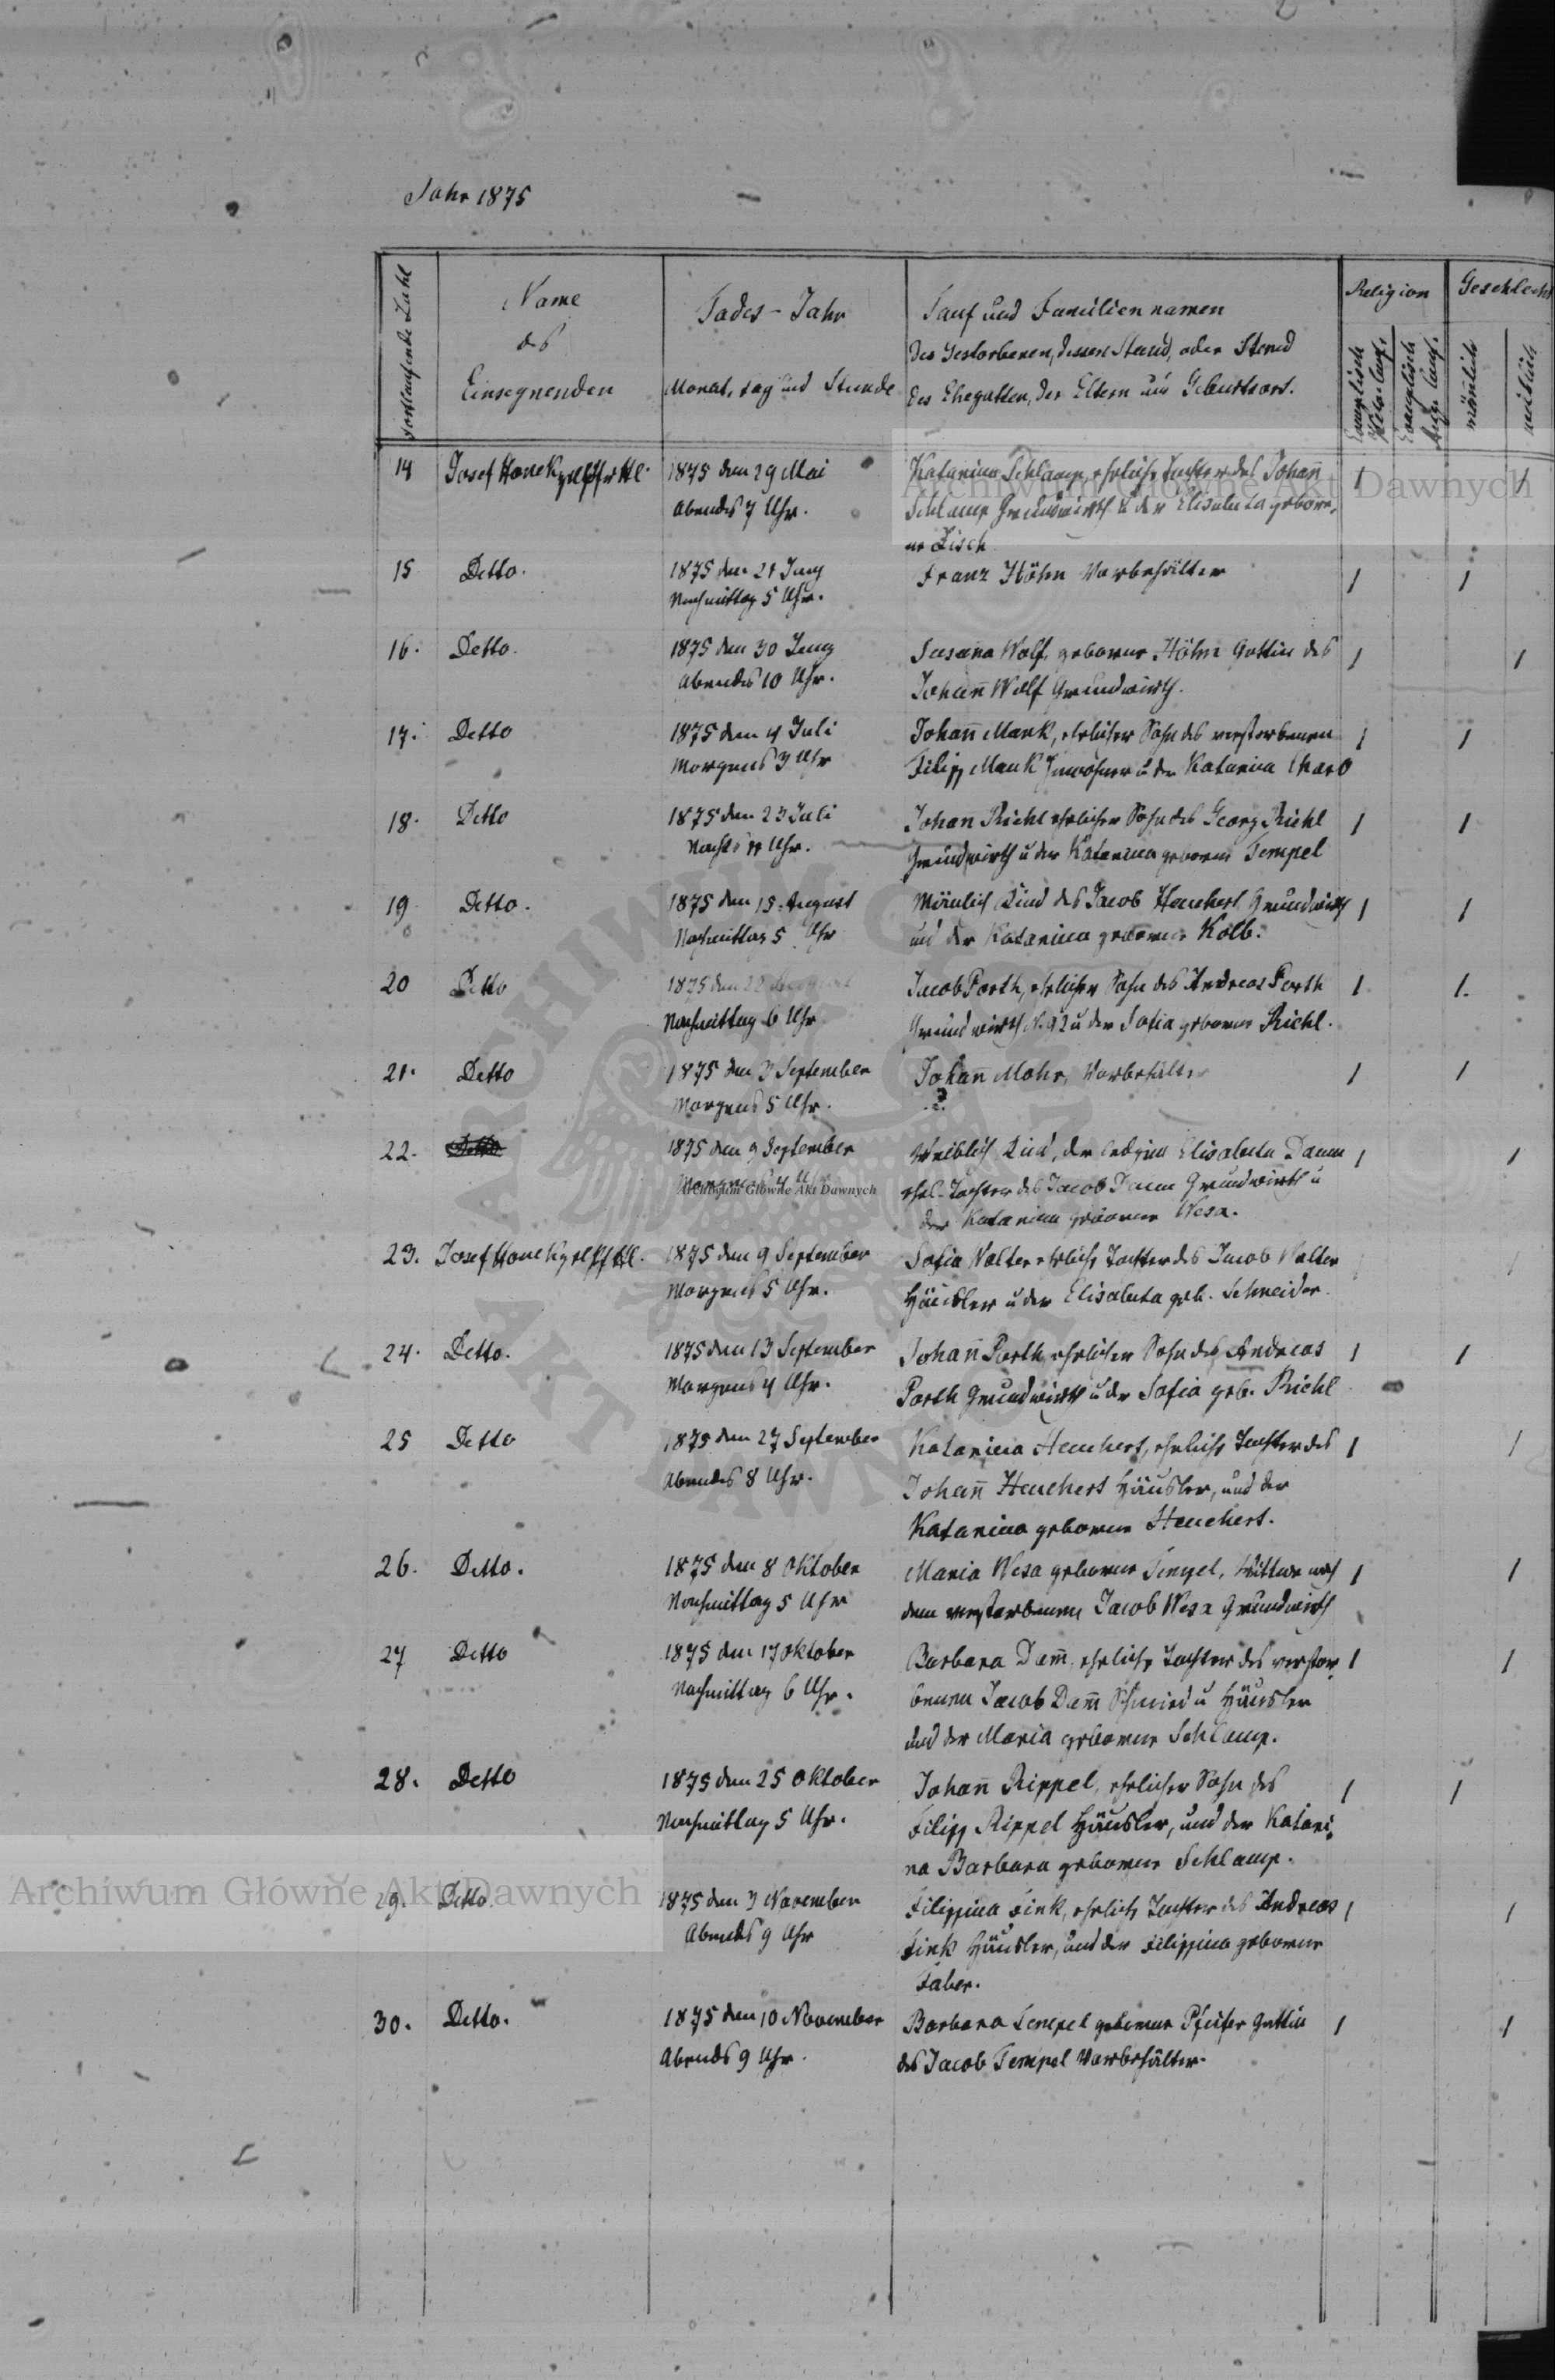 Jahr 1875
fortlaufende Zahl
Name
des
Einsegnenden
Todes - Jahr
Monat, Tag und Stunde
Tauf und Familien namen
des Gestorbenen, dessen Stand, oder Stand
des Ehegatten, der Eltern und Geburtsort.
Religion
Geschlecht
Evanglisch
Evanglisch
mänlich
weiblich
14 Josef Hanek 1875 den 29 Mai Katarina Schlamp, eheliche Tochter des Johañ 1 1
Abends 7 Uhr. Schlamp Grundwirth u der Elisabeta gebore,
ne Zisch
15 Detto. 1875 den 21 Juny Franz Höhn Vorbehälter 1 1
Nachmittag 5 Uhr.
16. Detto. 1875 den 30 Juny Susana Wolf, geborene Höhn Gattin des 1 1
Abends 10 Uhr. Johañ Wolf Grundwirth.
17. Detto 1875 den 4 Juli Johañ Mank, ehelicher Sohn des verstorbenen 1 1
Morgens 3 Uhr Filipp Mank Inwohner u der Katarina
18. Detto 1875 den 23 Juli Johan Riehl ehelicher Sohn des Georg Riehl 1 1
Nachts 11 Uhr. Grundwirth u der Katarina geborene Tempel
19 Detto. 1875 den 15. August Mänlich Kind des Jacob Heuchert Grundwirth 1 1
Nachmittag 5 Uhr und der Katarina geborene Kolb.
20 Detto 1875 den 22 August Jacob Porth, ehelicher Sohn des Andreas Porth 1 1.
Nachmittag 6 Uhr Grundwirth N. 92 u der Sofia geborene Riehl.
21. Detto 1875 den 3 September Johañ Mohr, Vorbehälter 1 1
Morgens 5 Uhr. ?
22. Detto 1875 den 9 September Weiblich Kind, der ledigen Elisabeta Damm 1 1
Morgens 4 Uhr ehel. Tochter des Jacob Damm Grundwirth u
der Katarina geborene Wesa.
23. Josef Hanek 1875 den 9 September Sofia Walter eheliche Tochter des Jacob Walter 1 1
Morgens 5 Uhr. Häusler u der Elisabeta geb. Schneider.
24. Detto. 1875 den 13 September Johañ Porth, ehelicher Sohn des Andreas 1 1
Morgens 4 Uhr. Porth Grundwirth u der Sofia geb. Riehl
25 Detto 1875 den 27 September Katarina Heuchert, eheliche Tochter des 1 1
Abends 8 Uhr. Johañ Heuchert Häusler, und der
Katarina geborene Heuchert.
26. Detto. 1875 den 8 Oktober Maria Wesa geborene Tempel, Wittwe nach 1 1
Nachmittag 5 Uhr dem verstorbenen Jacob Wesa Grundwirth
27 Detto 1875 den 17 Oktober Barbara Dam̄, eheliche Tochter des verstor 1 1
Nachmittag 6 Uhr. benen Jacob Dam̄ Schmied u Häusler
und der Maria geborene Schlamp.
28. Detto 1875 den 25 Oktober Johañ Rippel, ehelicher Sohn des 1 1
Nachmittag 5 Uhr. Filipp Rippel Häusler, und der Katari,
na Barbara geborene Schlamp.
29. Detto. 1875 den 3 November Filippina Fink, ehelich Tochter des Andreas 1 1
Abends 9 Uhr Fink Häusler, und der Filippina geborene
Faber.
30. Detto. 1875 den 10 November Barbara Tempel geborene Pfeifer Gattin 1 1
Abends 9 Uhr. des Jacob Tempel Vorbehälter.
Archiwum Główne Akt Dawnych
Archiwum Główne Akt Dawnych
Archiwum Główne Akt Dawnych